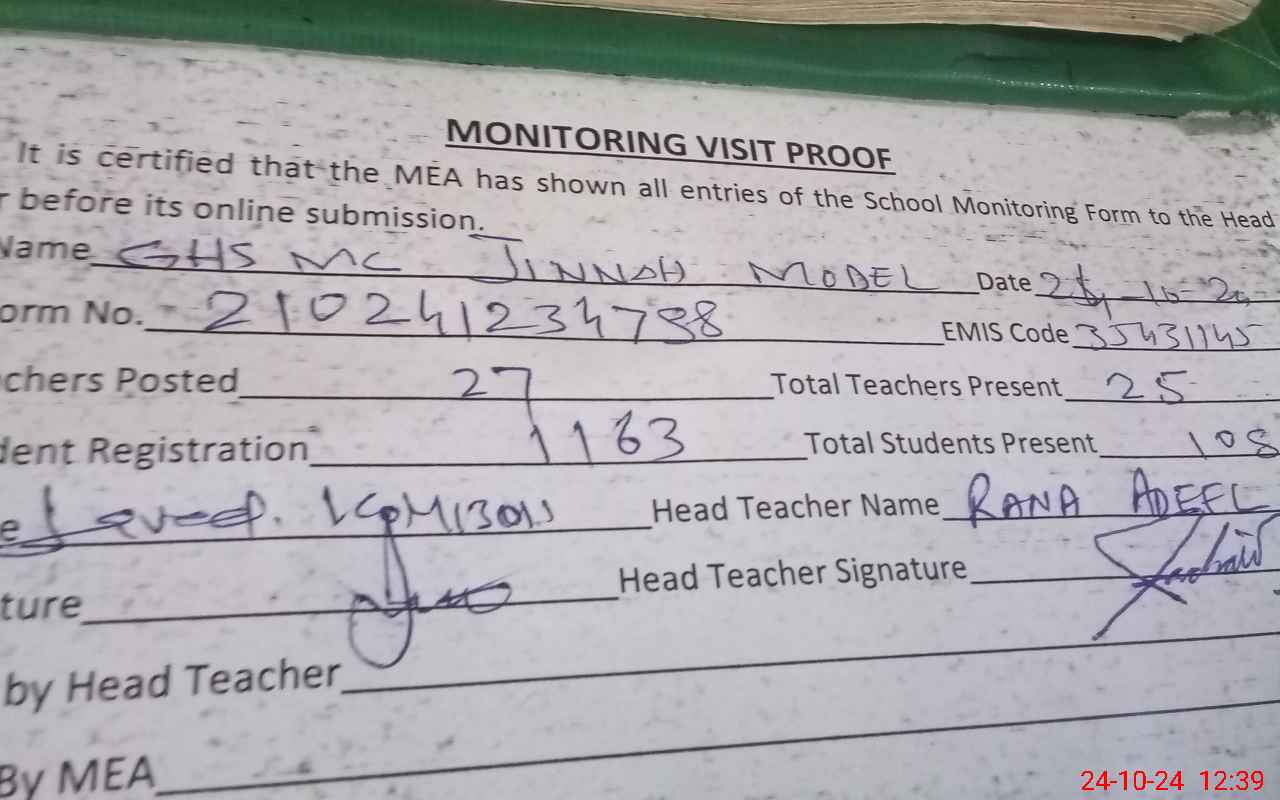 MONITORING VISIT PROOF
It is certified that the MEA has shown all entries of the School Monitoring Form to the Head
r before its online submission.
Name GHS MC JINNAH MODEL Date 24-10-24
orm No. 210241234798 EMIS Code 35431145
chers Posted 27 Total Teachers Present 25
dent Registration 1163 Total Students Present 108
e Javed. Head Teacher Name RANA ADEEL
ture Head Teacher Signature
by Head Teacher
By MEA
24-10-24 12:39